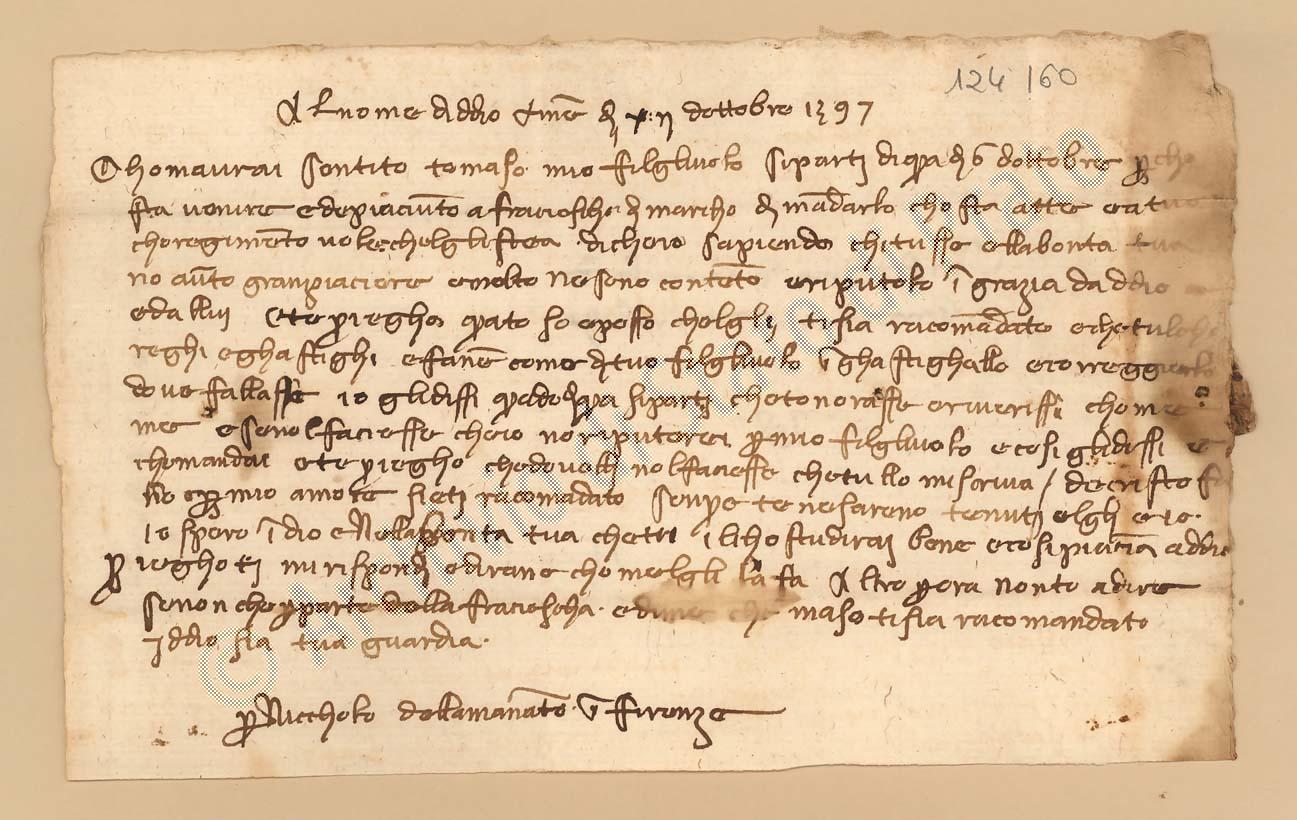 124 160
Al nome di dio amē dì xii dottobre 1397
Chomaurai sentito tomaso mio filgliuolo si partj di qua dì 6 dottobre p cho
sta uenire ed e piaciuto a franciescho di marcho di mādarlo chosta atte e a tuo
choregimēto uole chelgli stea di cheio sapiendo chi tusse ella bonta tua
no auto gran piaciere e molto ne sono contēto e riputolo ī grazia daddio
e da llui e te priegho quāto so e posso chelglj ti sia racomādato e che tu lo
reghi e ghastighi e fanē come di tuo filgliuolo ī ghastighallo e coreggierlo
doue fallasse io gli dissi quādo di qua si partj che tonorasse e riuerissi chome
me e se nol faciesse cheio no riputerei p mio filgliuolo e cosi gli dissi e
chomandai e te priegho che doue ttj nol faciesse che tu llo mi scriua / de cristo
no e p mio amore sietj racomādato senpe te ne sareno tenutj elgli e io
io spero ī dio e nella bonta tua chetti ī cho studirai bene e cosi piacia a ddio
Prieghotj mi rispondj e dirane chomelgli la fa Altro p ora non to a dire
se non che p parte della francischa e che maso ti sia racomandato
iddio sia tua guardia
p Niccholo dellamanato ī firenze